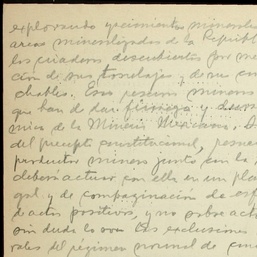 explorando yacimientos minerales
areas mineralizadas de la Repúbli
los criaderos descubiertos por me
ción de sus tonelajes y de su con
chables. Esa reserva minera
que han de dar firmeza y
mía de la Minería Mexicana.
del precepto constitucional,
productor minero junto con la
deberá actuar con ella en un plan
gal y de compaginación de esf
de actos positivos, y no sobre act
sin duda lo son las exclusiones
rales del régimen normal de con